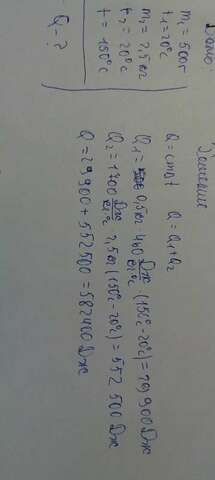 Дано:
m₁ = 500г
t₁ = 20°C
m₂ = 2,5кг
t₂ = 20°C
t = 150°C
Q - ?
Решение
Q = cm△t Q = Q₁ + Q₂
Q₁ = 0,5кг 460 Дж/кг°C (150°C - 20°C) = 29 900 Дж
Q₂ = 1700 Дж/кг°C 2,5кг (150°C - 20°C) = 552 500 Дж
Q = 29 900 + 552 500 = 582 400 Дж